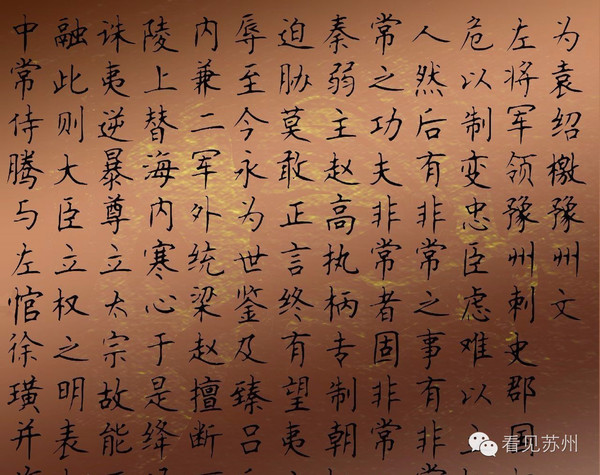 为袁绍檄豫州文
左将军领豫州刺史郡国
危以制变忠臣虑难以立
人然后有非常之事有非
常之功夫非常者固非常
秦弱主赵高执柄专制朝
迫胁莫敢正言终有望夷
辱至今永为世鉴及臻吕
内兼二军外统梁赵擅断
陵上替海内寒心于是绛
诛夷逆暴尊立太宗故能
融此则大臣立权之明表
中常侍腾与左悺徐璜并
看见苏州